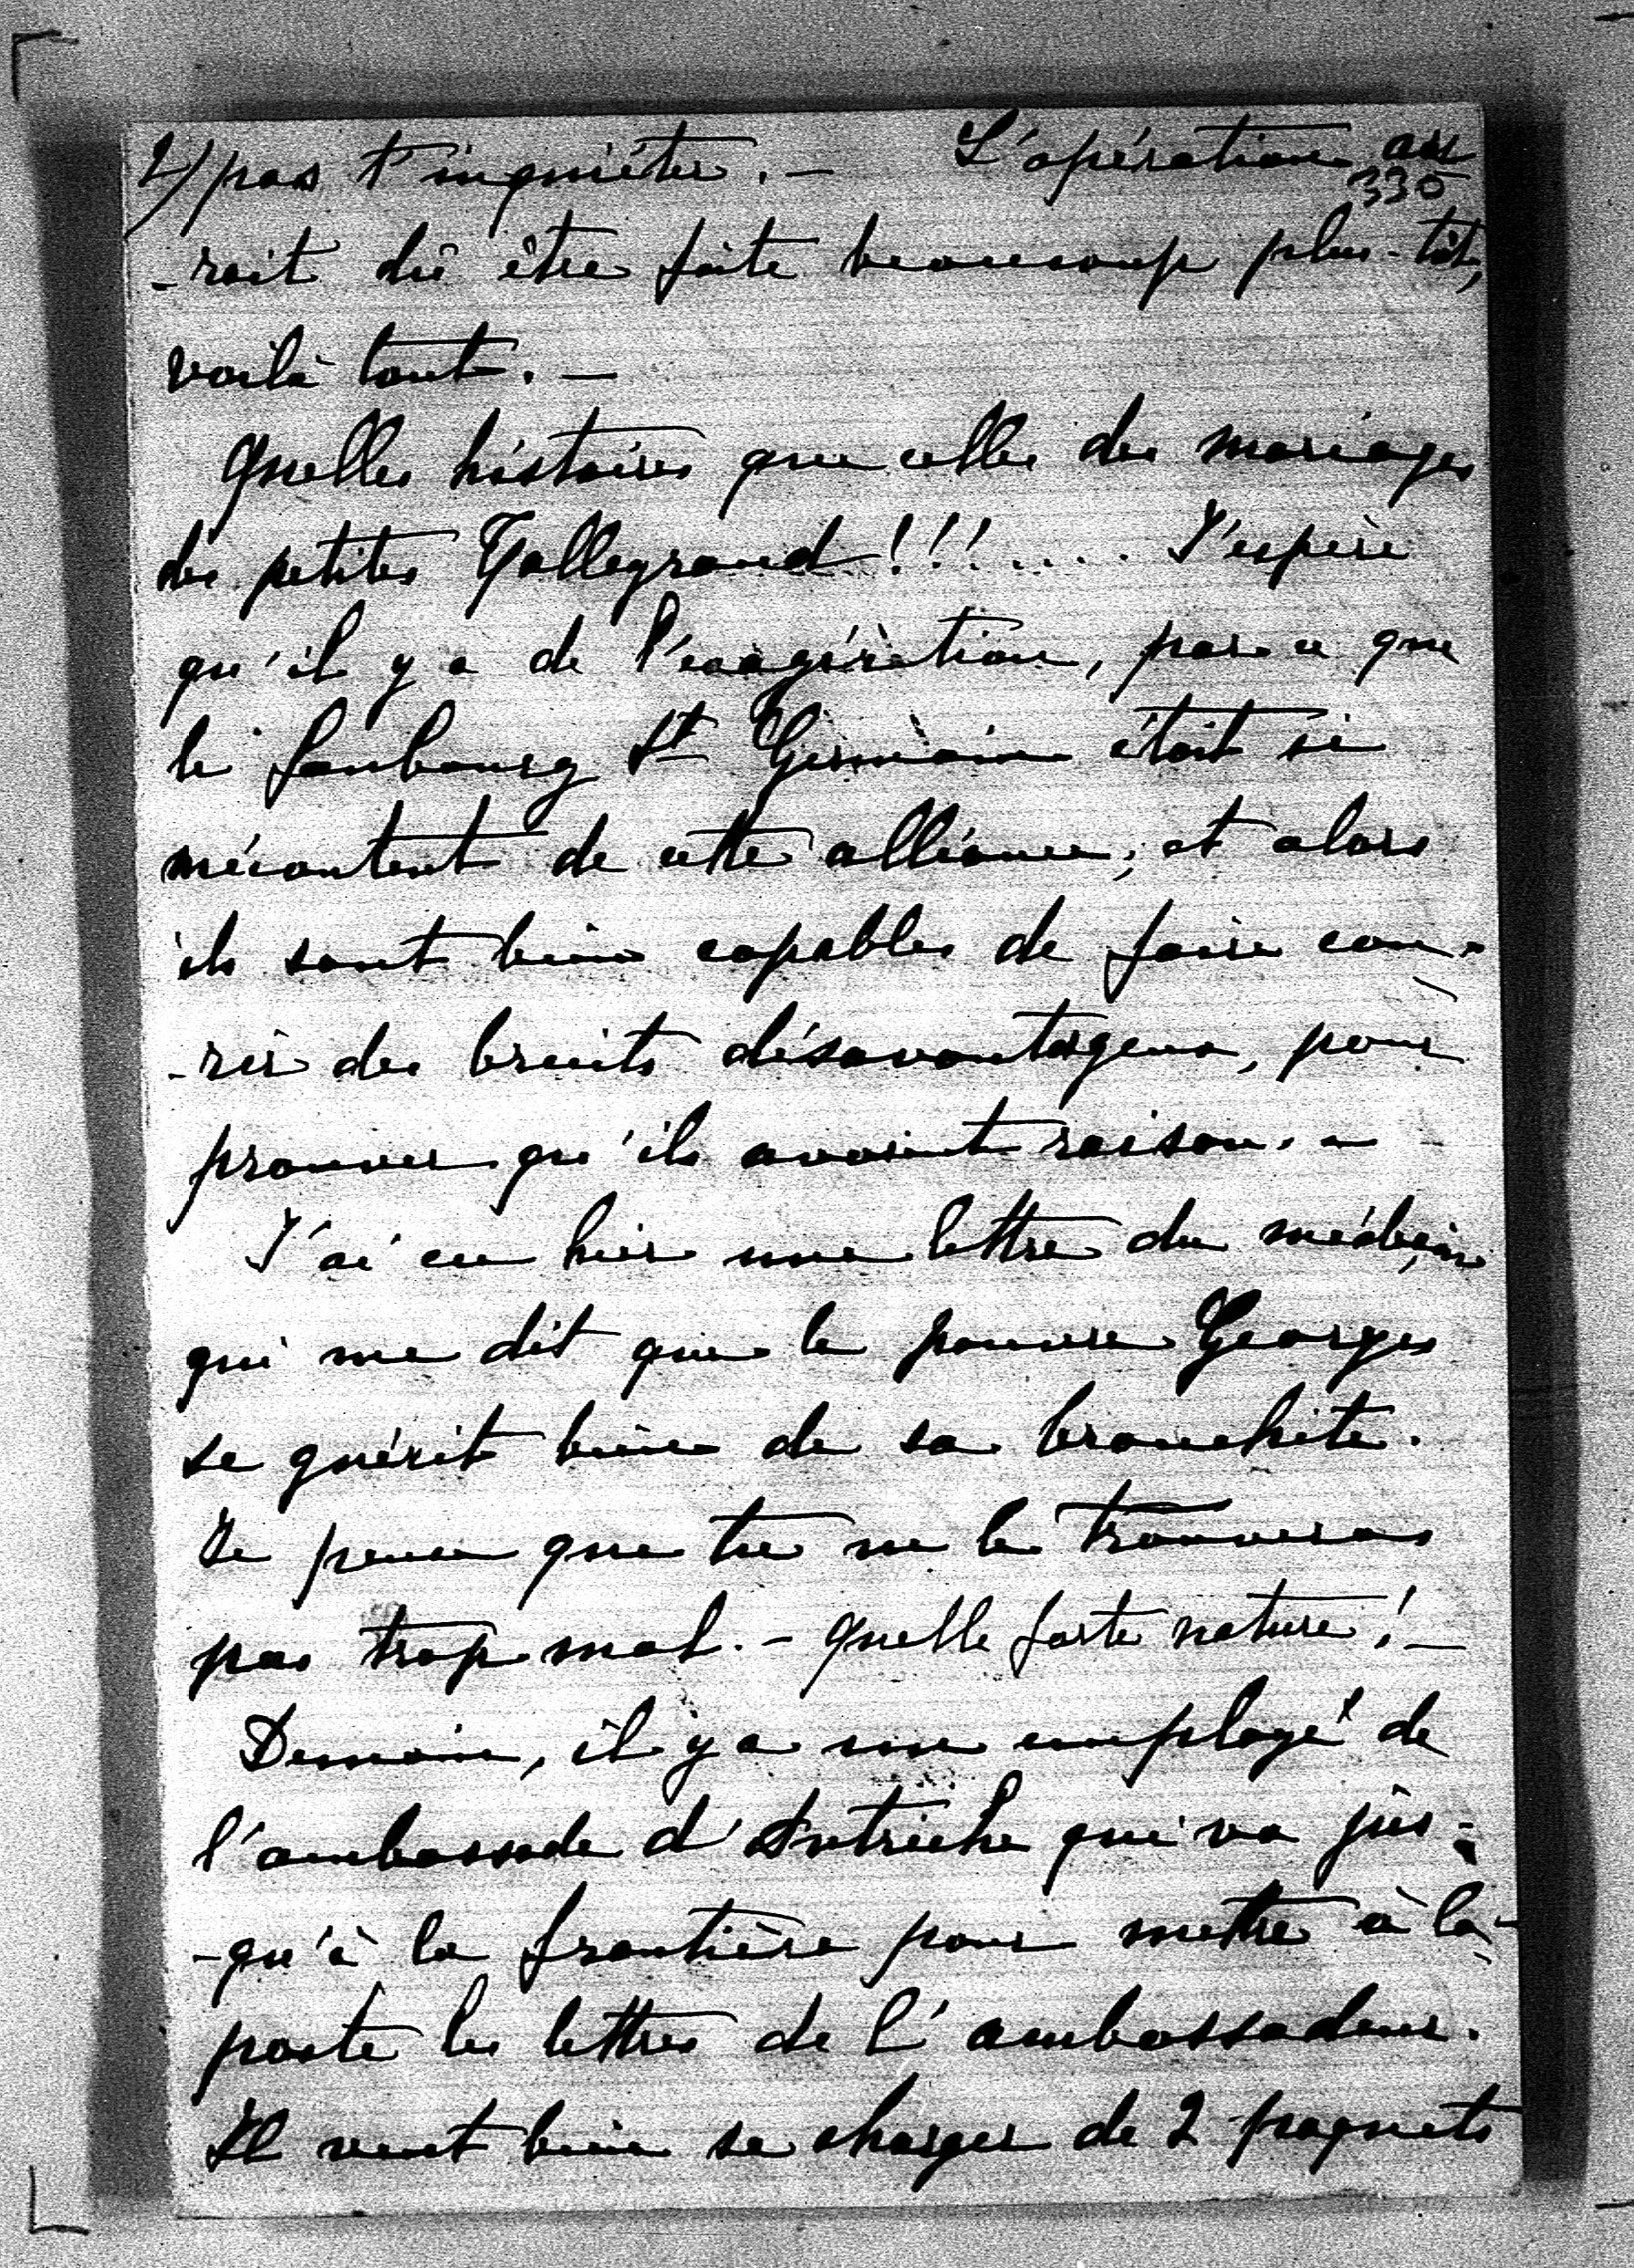 2) pas t'inquiéter. — L'opération au
335
-rait dû être faite beaucoup plus-tôt,
voilà tout. —
Quelles histoires que celles des mariages
des petites Gallegrand!!!.... J'espère
qu'il y a de l'exagération, parce que
le faubourg St Germain était si
mécontent de cette alliance; et alors
ils sont bien capables de faire cou-
-rir des bruits désavantageux, pour
prouver qu'ils avaient raison. —
J'ai eu hier une lettre du médecin
qui me dit que le pauvre Georges
se guérit bien de sa bronchite.
Je pense que tu ne le trouveras
pas trop mal. — quelle forte nature! —
Demain, il y a un employé de
l'ambassade d'Autriche qui va jus-
-qu'à la frontière pour mettre à la
poste les lettres de l'ambassadeur.
Il veut bien se charger de 2 paquets